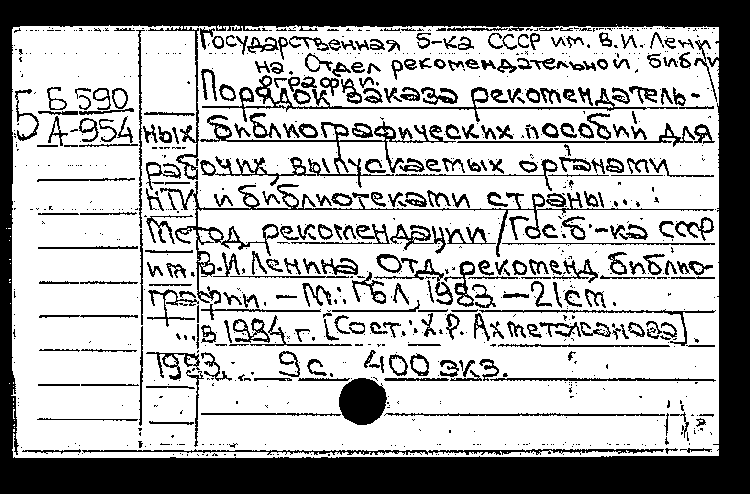 Государственная б-ка СССР им. В.И. Лени-
на. Отдел рекомендательной библи
ографии.
Б Б 590
А-954
Порядок заказа рекомендатель-
ных библиографических пособий для
рабочих, выпускаемых органами
НТИ и библиотеками страны...:
Метод. рекомендации / Гос. б-ка СССР
им. В.И. Ленина, Отд. рекоменд. библио-
графии. – М.: ГБЛ, 1983. – 21 см.
... в 1984 г. [Сост.: Х.Р. Ахметжанова].
1983. 9 с. 400 экз.